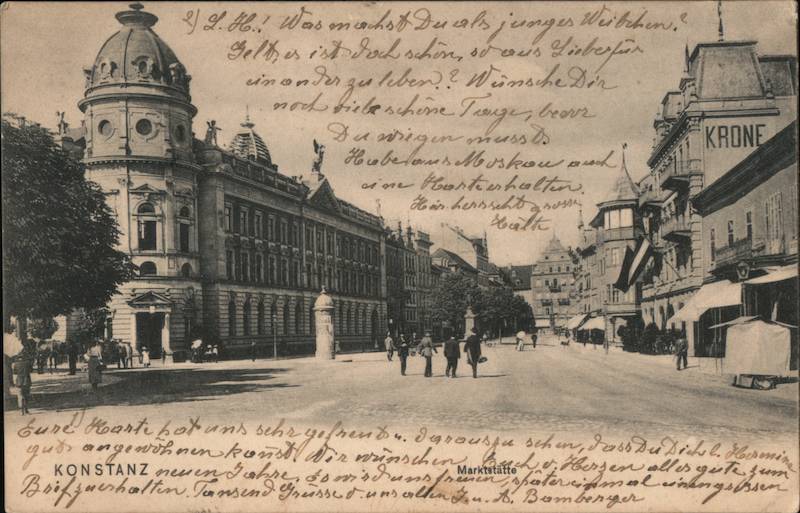 2) L. H.! Was machst Du als junges Weibchen?
Gelt es ist doch schön, so aus Liebe für
einander zu leben? Wünsche Dir
noch viele schöne Tage, bevor
Du wiegen musst.
Habe aus Moskau auch
eine Karte erhalten.
Hir herrscht grosse
Kälte
KRONE
1)
Eure Karte hat uns sehr gefreut u. daraus zu sehen, dass Du Dich l. Hermine
gut angewöhnen kanst. Wir wünschen Euch v. Herzen alles gute zum
KONSTANZ
Marktstätte
neuen Jahre. Es wird uns freuen, später einmal einen grossen
Brief zu erhalten. Tausend Grüsse v. uns allen J. u. A. Bamberger